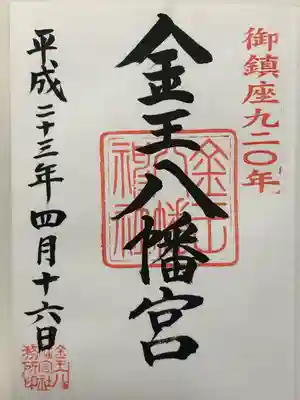 御鎮座九二〇年
金王八幡宮
平成二十三年四月十六日
金王八幡神社
金王八幡宮社務所印